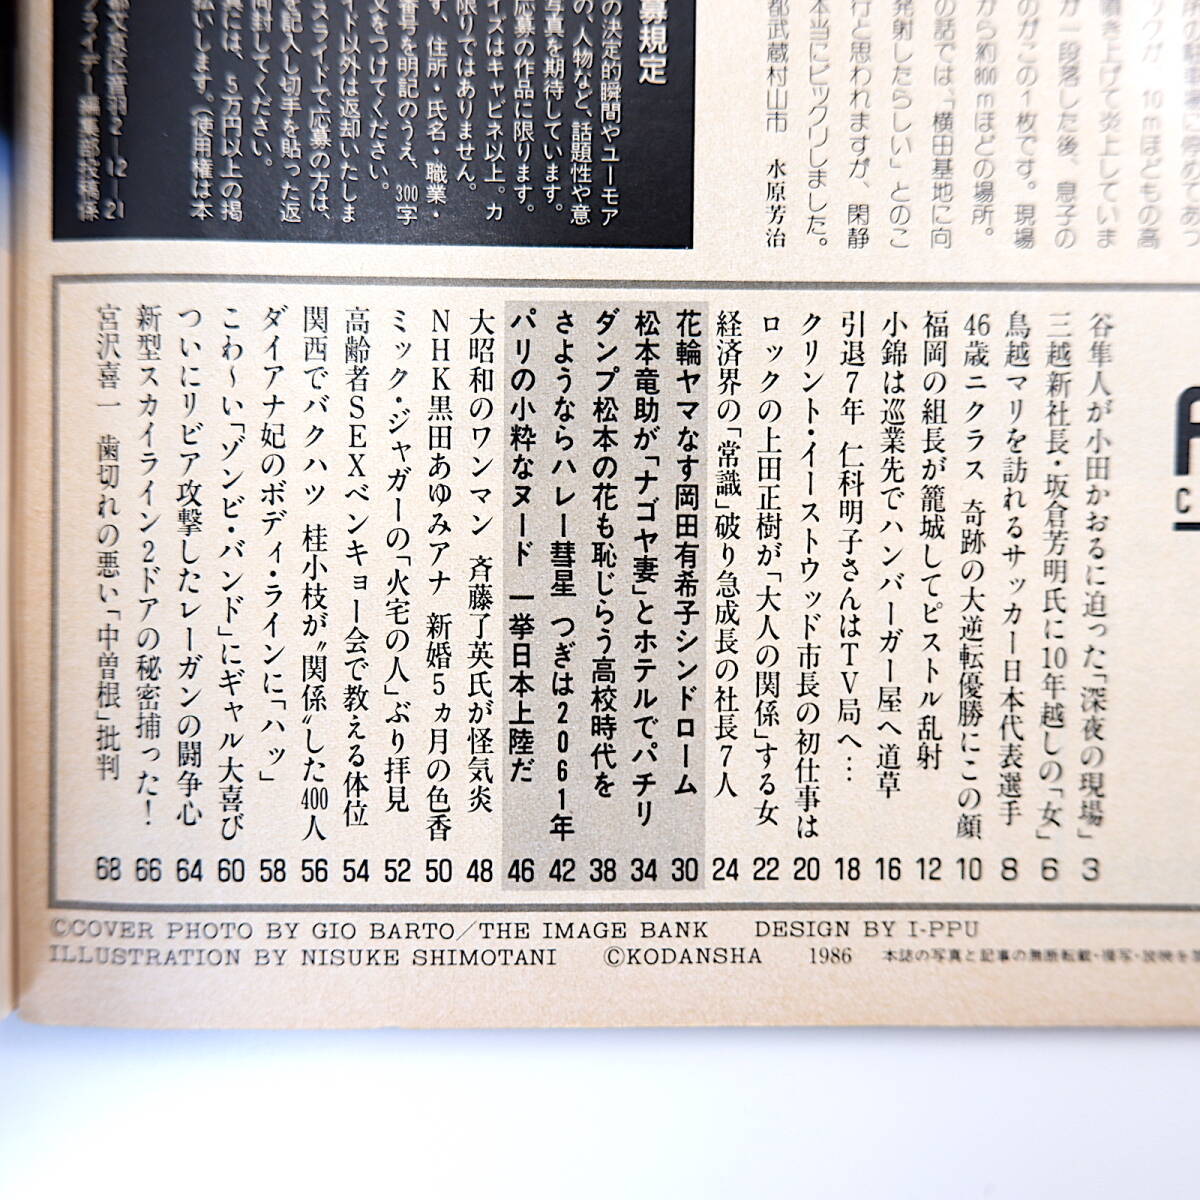 噴き上げて炎上していま
が一段落した後、息子の
のがこの1枚です。現場
から約800mほどの場所。
の話では「横田基地に向
発射したらしい」とのこ
行と思われますが、閑静
本当にビックリしました。
都武蔵村山市　水原芳治
募規定
の決定的瞬間やユーモア
の、人物など、話題性や意
写真を期待しています。
応募の作品に限ります。
イズはキャビネ以上。カ
限りではありません。
す、住所・氏名・職業・
番号を明記のうえ、300字
文をつけてください。
イド以外は返却いたしま
スライドで応募の方は、
を記入し切手を貼った返
同封してください。
真には、5万円以上の掲
払いします。（使用権は本
都文京区音羽2—12—21
ライデー編集部投稿係
谷隼人が小田かおるに迫った「深夜の現場」 3
三越新社長・坂倉芳明氏に10年越しの「女」 6
鳥越マリを訪れるサッカー日本代表選手 8
46歳ニクラス 奇跡の大逆転優勝にこの顔 10
福岡の組長が籠城してピストル乱射 12
小錦は巡業先でハンバーガー屋へ道草 16
引退7年 仁科明子さんはTV局へ… 18
クリント・イーストウッド市長の初仕事は 20
ロックの上田正樹が「大人の関係」する女 22
経済界の「常識」破り急成長の社長7人 24
花輪ヤマなす岡田有希子シンドローム 30
松本竜助が「ナゴヤ妻」とホテルでパチリ 34
ダンプ松本の花も恥じらう高校時代を 38
さようならハレー彗星 つぎは2061年 42
パリの小粋なヌード 一挙日本上陸だ 46
大昭和のワンマン 斉藤了英氏が怪気炎 48
NHK黒田あゆみアナ 新婚5ヵ月の色香 50
ミック・ジャガーの「火宅の人」ぶり拝見 52
高齢者SEXベンキョー会で教える体位 54
関西でバクハツ 桂小枝が〝関係〟した400人 56
ダイアナ妃のボディ・ラインに「ハッ」 58
こわ〜い「ゾンビ・バンド」にギャル大喜び 60
ついにリビア攻撃したレーガンの闘争心 64
新型スカイライン2ドアの秘密捕った！ 66
宮沢喜一 歯切れの悪い「中曽根」批判 68
©COVER PHOTO BY GIO BARTO/THE IMAGE BANK DESIGN BY I-PPU
ILLUSTRATION BY NISUKE SHIMOTANI ©KODANSHA 1986 本誌の写真と記事の無断転載・複写・放映を